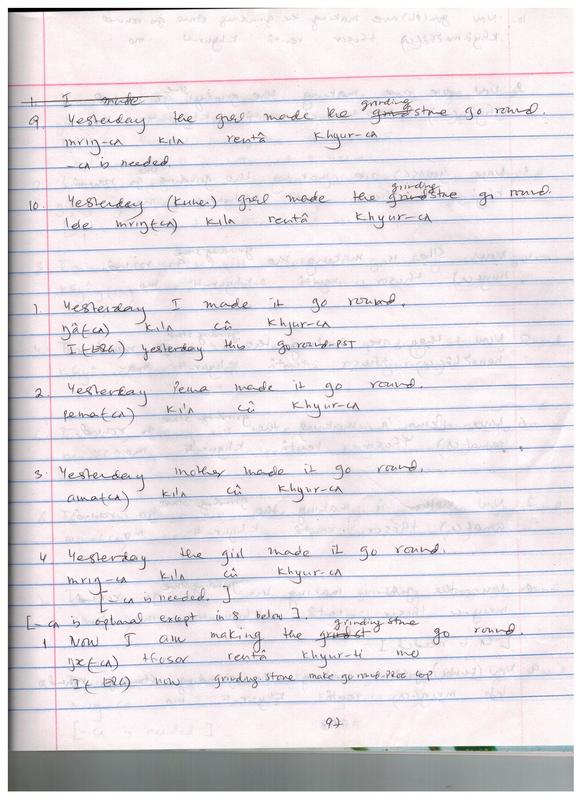 1. I made
9. Yesterday the girl made the grinding stone go round.
mriŋ-cʌ kilʌ rentâ khyur-cʌ
-cʌ is needed
10. Yesterday (Kuhei) girl made the grinding stone go round.
mriŋ(cʌ) kilʌ rentâ khyur-cʌ
1. Yesterday I made it go round.
ŋâ(cʌ) kilʌ cû khyur-cʌ
I(ERG) yesterday this go round-PST
2. Yesterday Pema made it go round.
pema(cʌ) kilʌ cû khyur-cʌ
3. Yesterday mother made it go round.
ama(cʌ) kilʌ cû khyur-cʌ
4 Yesterday the girl made it go round.
mriŋ-cʌ kilʌ cû khyur-cʌ
[-cʌ is needed.]
[-cʌ is optional except in 8 below].
1 Now I am making the grinding stone go round.
rentâ khyur-ti mo
I(ERG) now grinding stone make.go round-PROG cop
97